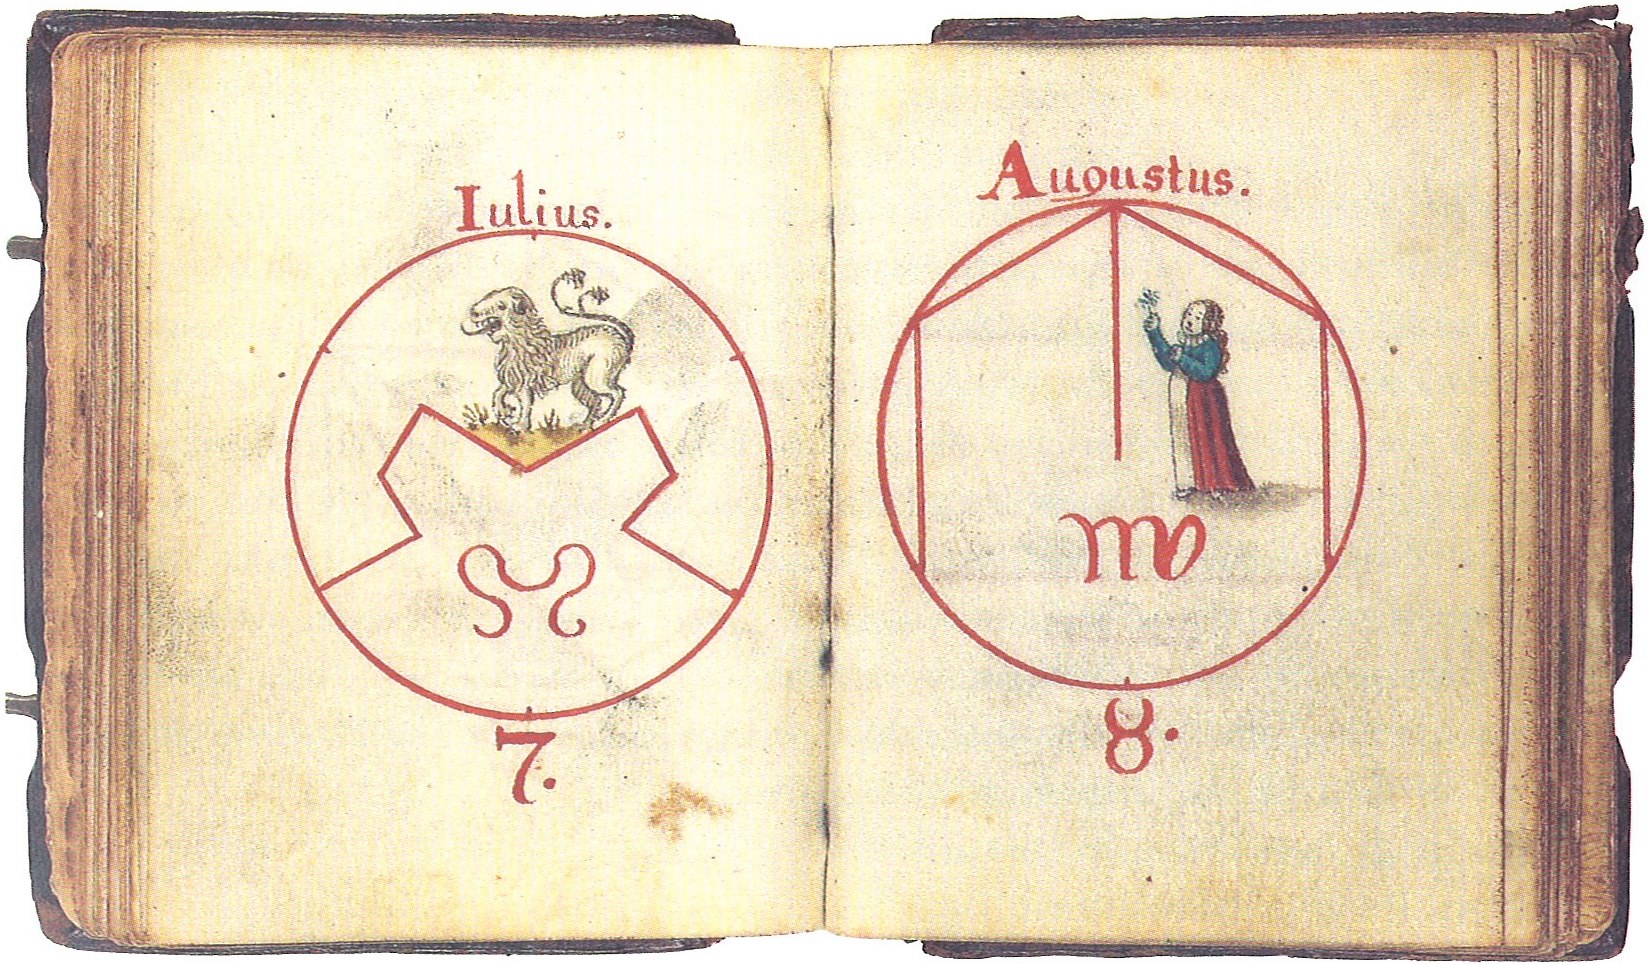 Iulius.
7.
Auoustus.
8.